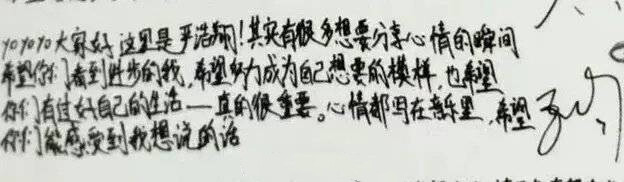 yo yo yo 大家好 这里是严浩翔！其实有很多想要分享心情的瞬间
希望你们看到进步的我，希望努力成为自己想要的模样，也希望
你们有过好自己的生活——真的很重要。心情都写在音乐里，希望
你们能感受到我想说的话